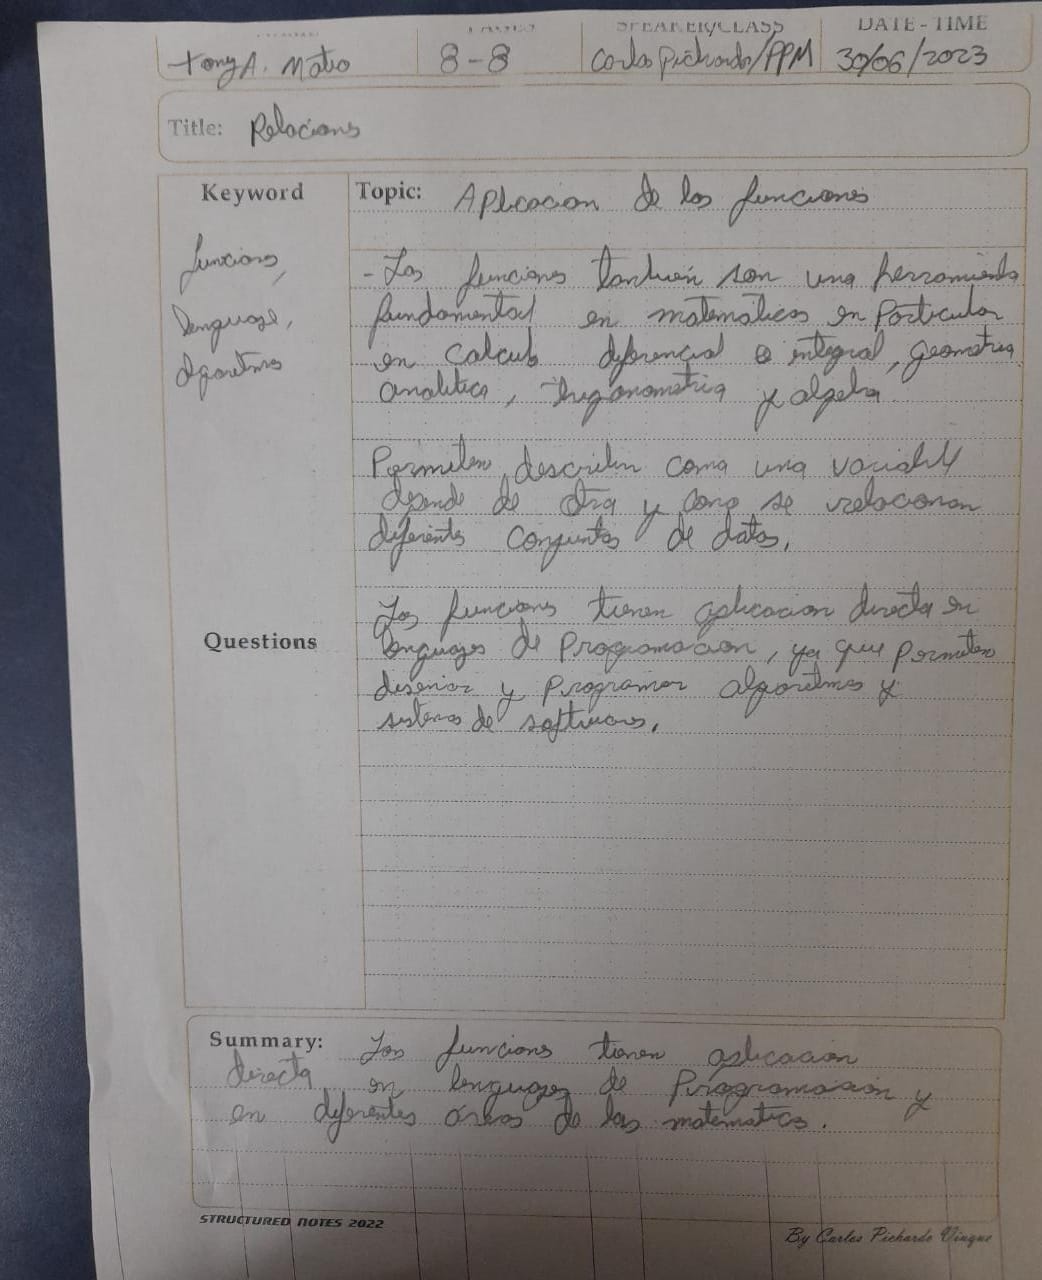 SPEAKER/CLASS
DATE - TIME
Tony A. Mateo
8-8
Carlos Pichardo/PPM
30/06/2023
Title: Relaciones
Keyword
funciones,
lenguaje,
algoritmos
Topic: Aplicacion de las funciones
- Las funciones también son una herramienta
fundamental en matemáticas en particular
en calculo diferencial e integral, geometria
analitica, trigonometria y algebra
Permiten describir como una variable
depende de otra y como se relacionan
diferentes conjuntos de datos.
Questions
Las funciones tienen aplicacion directa en
lenguajes de programacion, ya que permiten
diseñar y programar algoritmos y
sistemas de softwares.
Summary: Las funciones tienen aplicacion
directa en lenguajes de Programacion y
en diferentes áreas de las matematica.
STRUCTURED NOTES 2022
By Carlos Pichardo Vinque